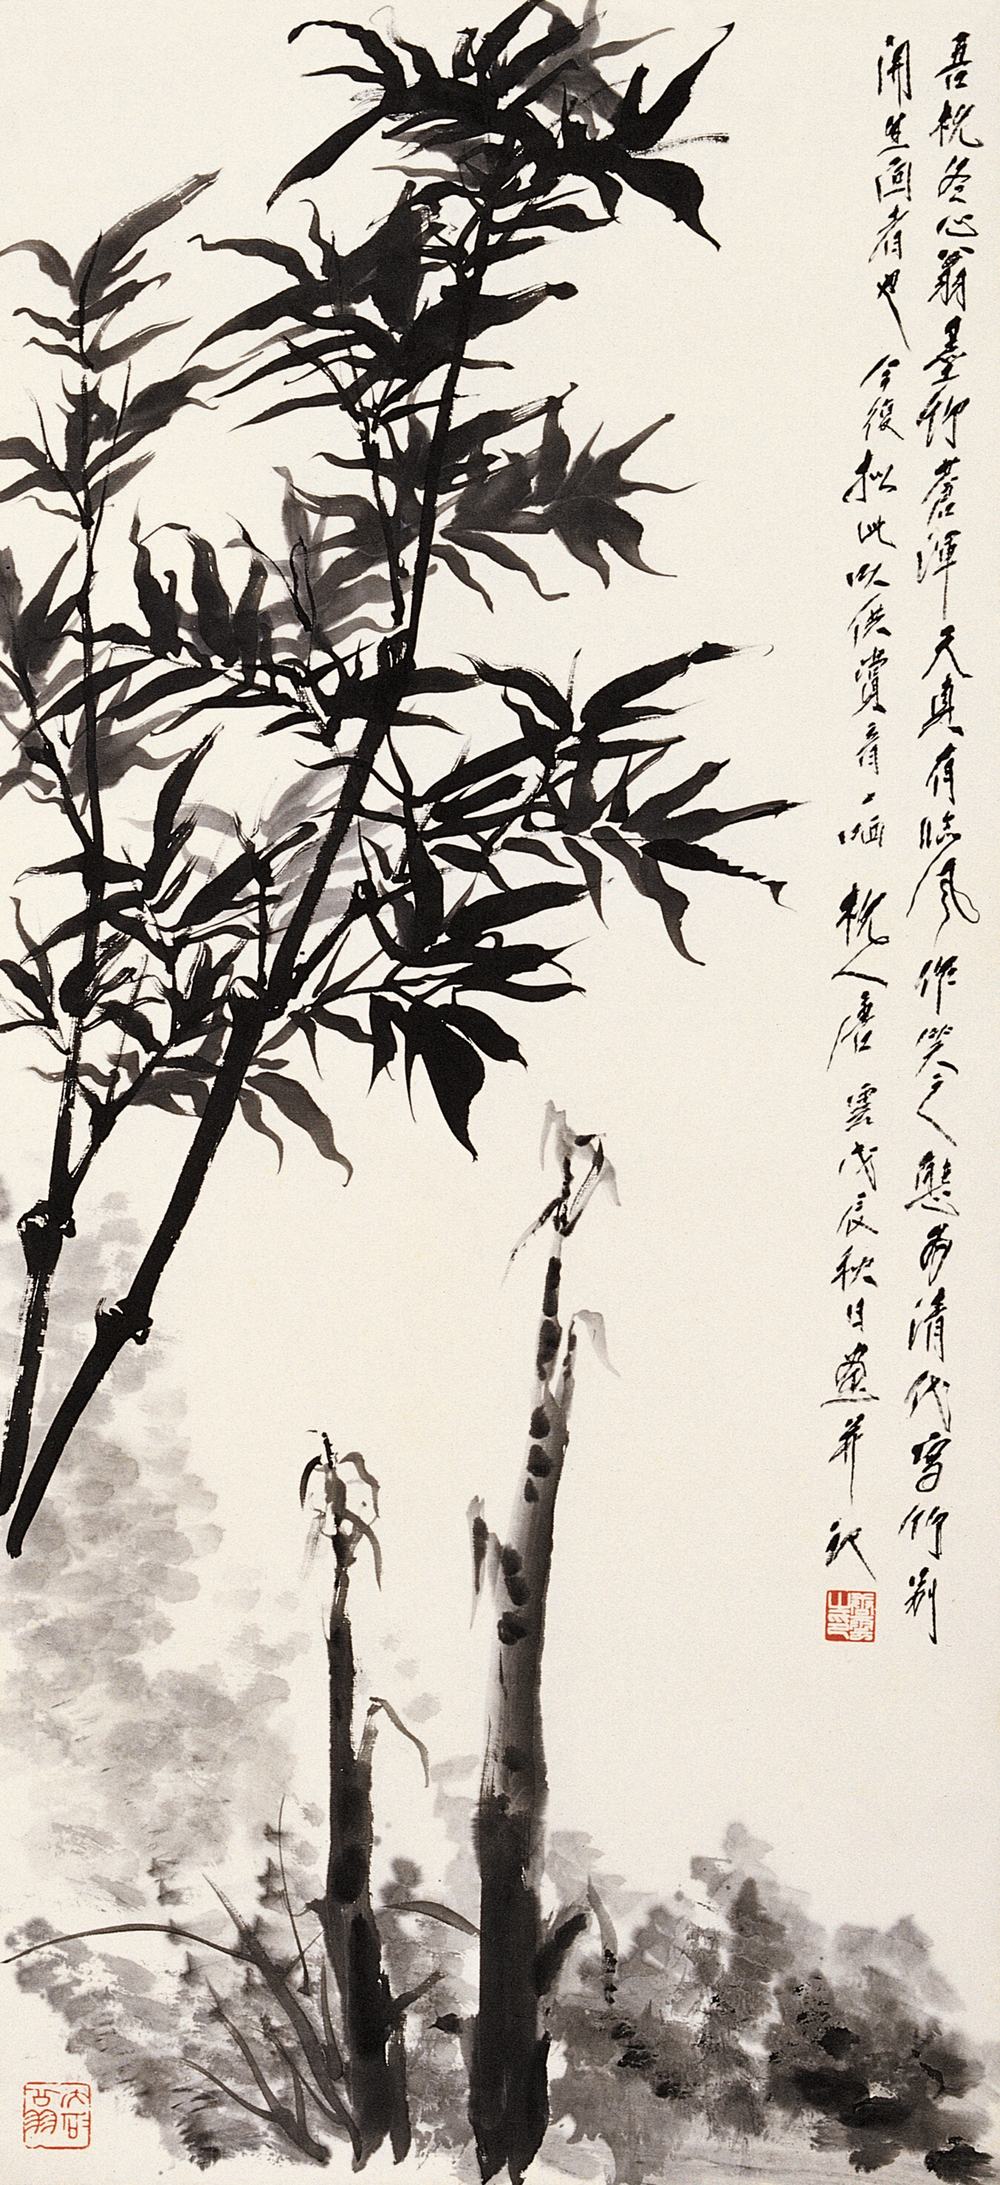 吾杭冬心翁墨竹蒼渾天真有臨風作笑之態為清代寫竹別
開生面者也今復擬此以供賞音一哂杭人唐雲戊辰秋日畫并記